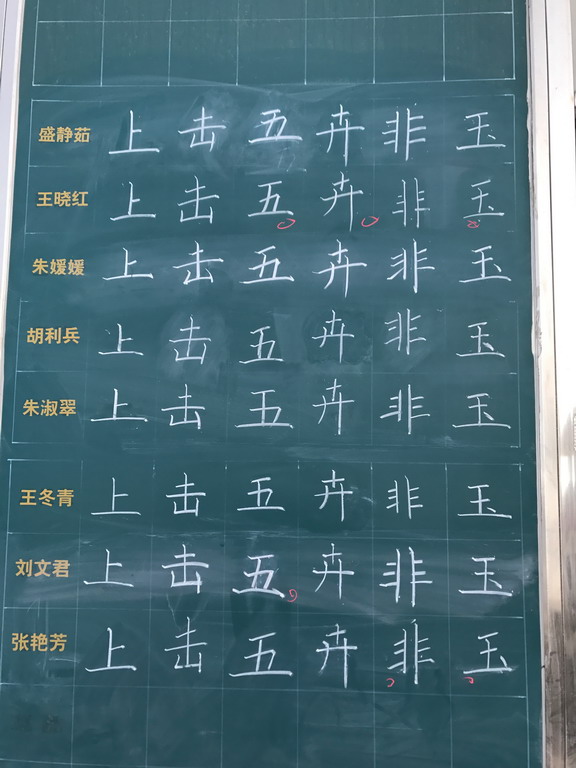 盛静茹 上 击 五 卉 非 玉
王晓红 上 击 五 卉 非 玉
朱媛媛 上 击 五 卉 非 玉
胡利兵 上 击 五 卉 非 玉
朱淑翠 上 击 五 卉 非 玉
王冬青 上 击 五 卉 非 玉
刘文君 上 击 五 卉 非 玉
张艳芳 上 击 五 卉 非 玉